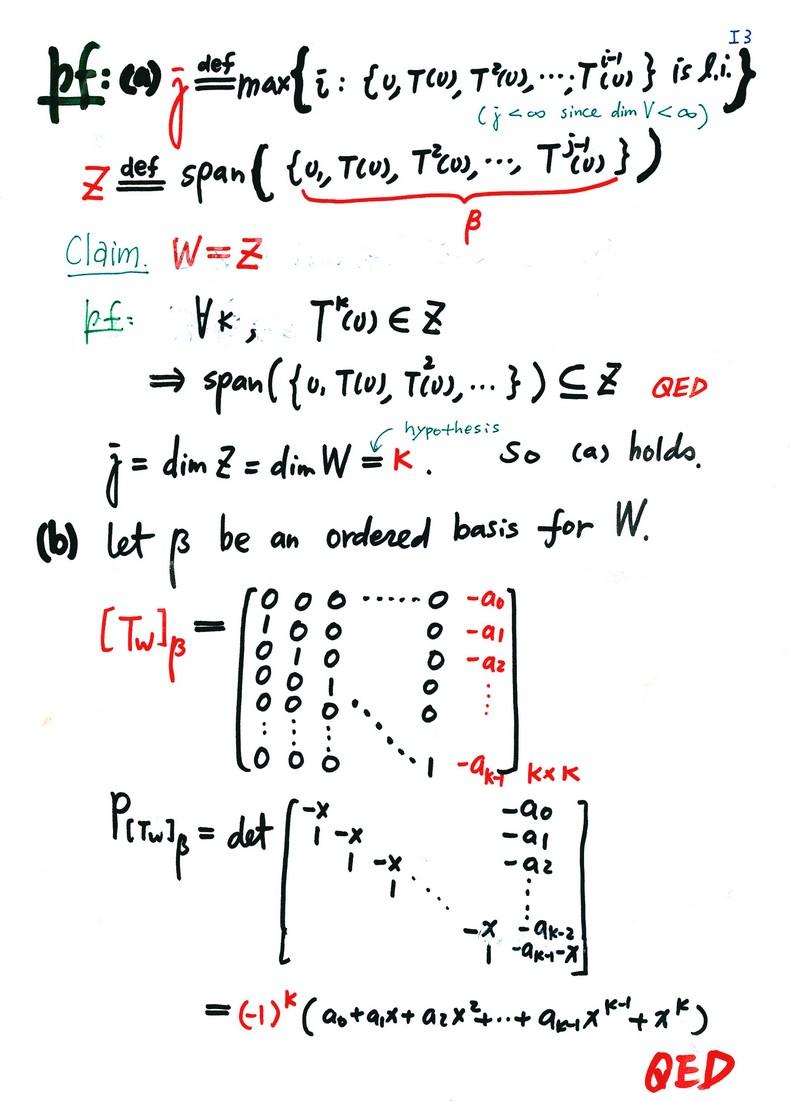 I3
pf: (a) j def= max{ i : {v, T(v), T²(v), ..., Tⁱ⁻¹(v)} is l.i. }
(j < ∞ since dim V < ∞)
Z def= span( {v, T(v), T²(v), ..., Tʲ⁻¹(v)} )
β
Claim. W = Z
pf: ∀k, Tᵏ(v) ∈ Z
⇒ span({v, T(v), T²(v), ...}) ⊆ Z QED
hypothesis
j = dim Z = dim W = k. So (a) holds.
(b) let β be an ordered basis for W.
[T_W]_β = [ 0 0 0 ...... 0 -a₀
1 0 0 0 -a₁
0 1 0 0 -a₂
0 0 1 0 ⋮
0 0 0 ⋱ 0
⋮ ⋮ ⋮
0 0 0 1 -a_{k-1} ] k×k
P_{[T_W]_β} = det [ -x -a₀
1 -x -a₁
1 -x -a₂
1 ⋱ ⋮
-x -a_{k-2}
1 -a_{k-1}-x ]
= (-1)ᵏ (a₀ + a₁x + a₂x² + ... + a_{k-1}x^{k-1} + xᵏ)
QED